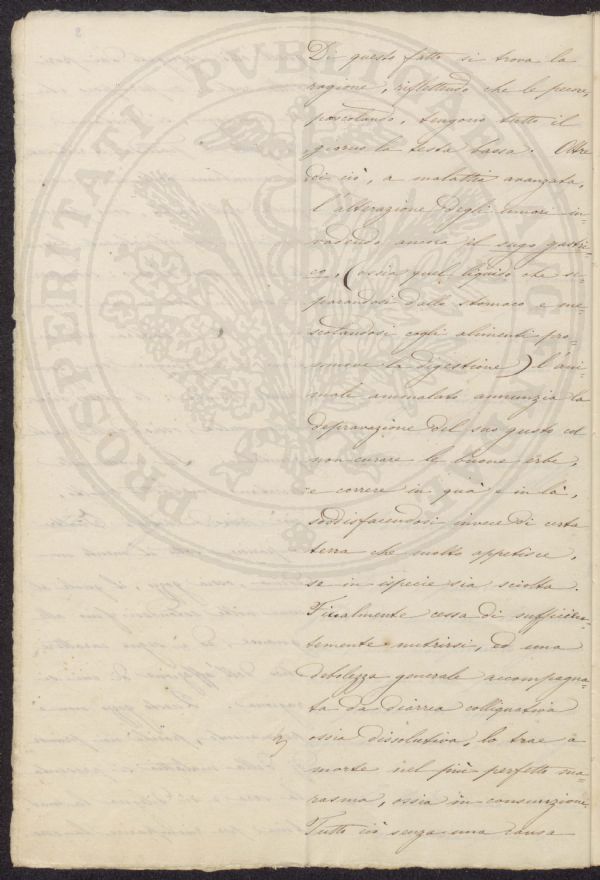 Di questo fatto si trova la
ragione, riflettendo che le pecore,
pascolando, tengono tutto il
giorno la testa bassa. Oltre
di ciò, a malattia avanzata,
l'alterazione degli umori in=
vadendo ancora il sugo gastri=
co, (ossia quel liquido che se=
parandosi dallo stomaco e me=
scolandosi cogli alimenti pro=
muove la digestione) l'ani=
male ammalato annunzia la
depravazione del suo gusto col
non curare le buone erbe,
e correre in quà e in là,
soddisfacendosi invece di certa
terra che molto appetisce,
se in ispecie sia sciolta.
Finalmente cessa di sufficien=
temente nutrirsi, ed una
debolezza generale accompagna=
ta da diarrea colliquativa
ossia dissolutiva, lo trae a
morte nel più perfetto ma=
rasma, ossia in consunzione.
Tutto ciò senza una causa
PROSPERITATI PUBLICAE